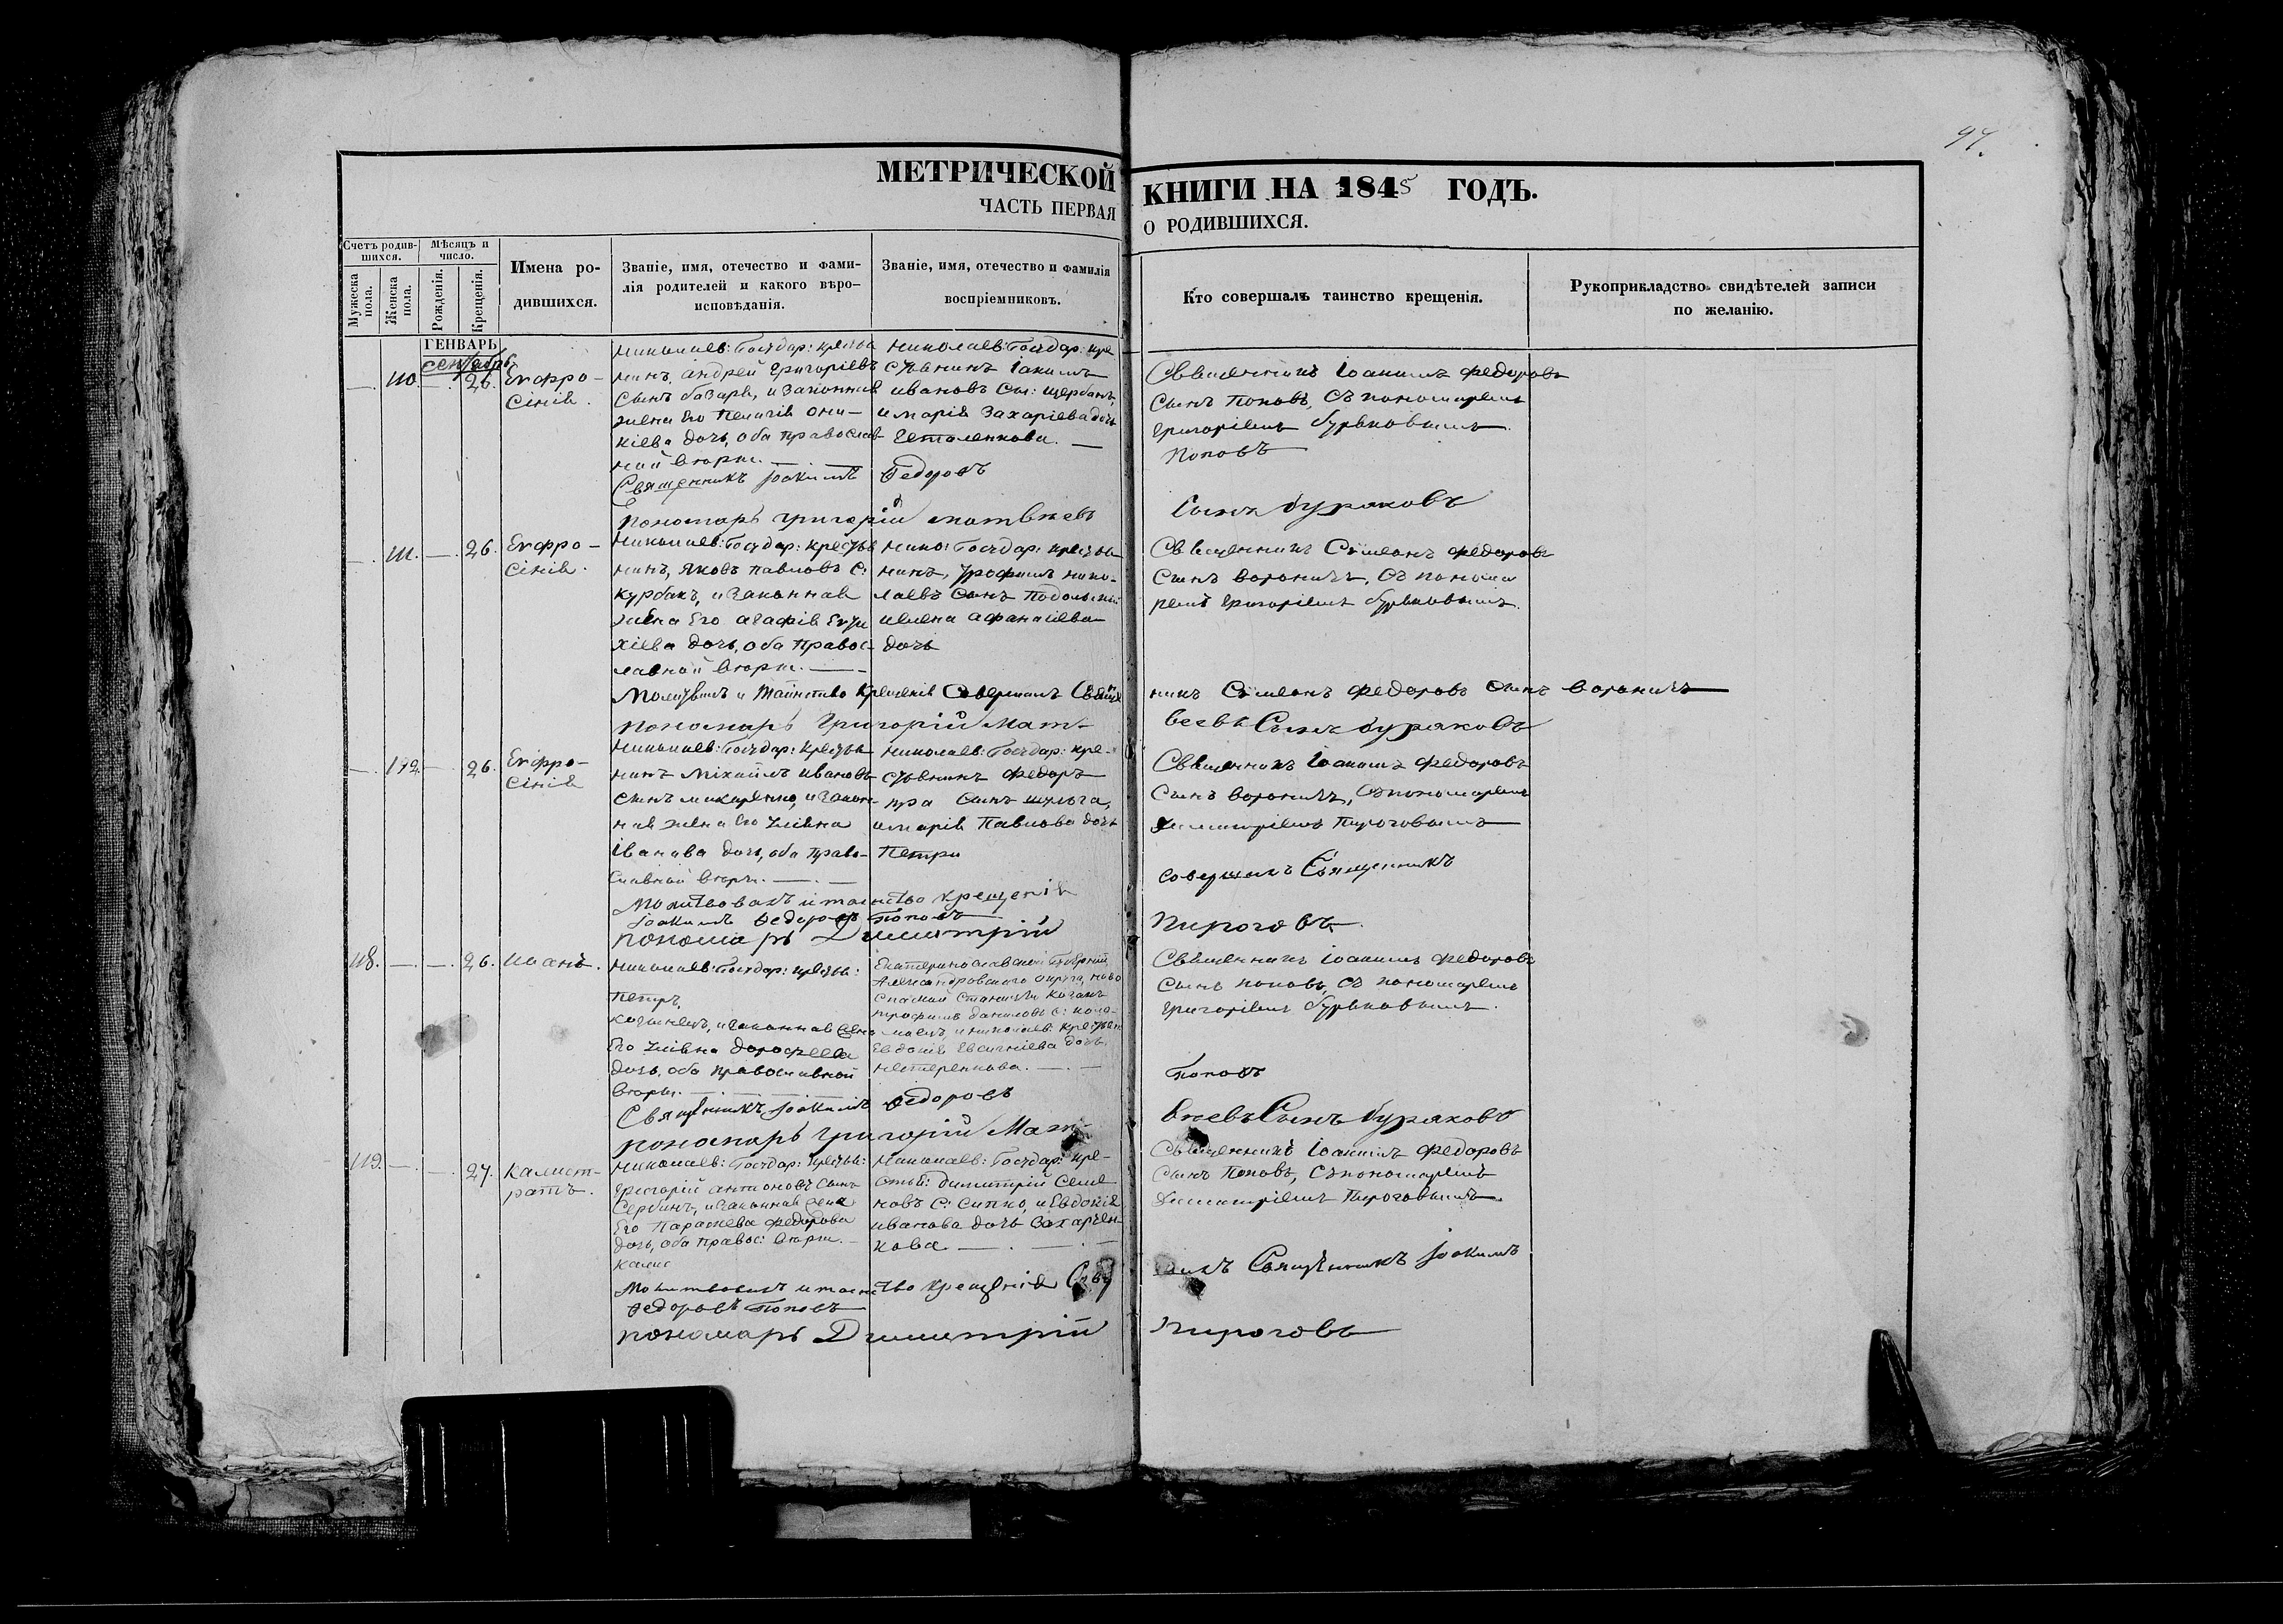 97.
МЕТРИЧЕСКОЙ КНИГИ НА 1845 ГОДЪ.
ЧАСТЬ ПЕРВАЯ О РОДИВШИХСЯ.
Счетъ родив-
шихся.
Мужеска пола.
Женска пола.
Мѣсяцъ и
число.
Рожденія.
Крещенія.
Имена ро-
дившихся.
Званіе, имя, отечество и фами-
лія родителей и какого вѣро-
исповѣданія.
Званіе, имя, отечество и фамилія
воспріемниковъ.
Кто совершалъ таинство крещенія.
Рукоприкладство свидѣтелей записи
по желанію.
ГЕНВАРЬ
сентябрь
110.
26.
Евфро-
сінія.
Николаев: Государ: крестья
нинъ, андрей григоріевъ
сынъ базарь, и законная
жена его Пелагія они-
кіева дочь, оба православ-
ной вѣры.
Николаев: Государ: кре
стьянинъ Іакимъ
ивановъ сы: щербань,
и марія Захаріева дочь
Священникъ Іоакимъ федоровъ
сынъ Поповъ, съ пономаремъ
григоріемъ буряковымъ.
Священникъ Іоакимъ Федоровъ Поповъ
Пономарь григорій матвѣевъ Сынъ буряковъ
111.
26.
Евфро-
сінія.
Николаев: Государ: крестья
нинъ, яковъ павловъ с:
курбакъ, и законная
жена Его агафія Евти
хіева дочь, оба правос-
лавной вѣры.
Нико: Государ: крестья
нинъ, трофимъ нико-
лаевъ сынъ Подольскій
и елена афанасіева
дочь
Священникъ Симеонъ федоровъ
сынъ вороничъ, съ понома
ремъ григоріемъ буряковымъ.
Молитвилъ и таинство крещенія Совершилъ Священ никъ Симеонъ федоровъ сынъ вороничъ
пономарь Григорій Мат- веевъ Сынъ буряковъ
112.
26.
Евфро-
сінія
Николаев: Государ: крестья
нинъ Михайлъ ивановъ
сынъ макаренко, и закон-
ная жена его уліяна
іванова дочь, оба право-
славной вѣры.
Николаев: Государ: кре-
стьянинъ федоръ
сынъ шульга,
и марія Павлова дочь
Петри
Священникъ Іоакимъ федоровъ
сынъ вороничъ, съ пономаремъ
димитріемъ Пироговымъ
Молитвовалъ и таинство крещенія совершилъ Священникъ
Іоакимъ Федоровъ Поповъ
пономарь Димитрій Пироговъ
118.
26.
Иоанъ.
Николаев: Государ: крестья:
Петръ
казанецъ, и законная жена
Его уліяна дорофеева
дочь, оба православной
вѣры.
Екатеринославской Губерніи
Александровского округа, ново
спаской станицы козакъ
трофимъ даниловъ с: коло-
моецъ, и николаев: крестьян
Евдокія Евсигніева дочь
нестеренкова.
Священникъ Іоакимъ федоровъ
сынъ поповъ, съ пономаремъ
григоріемъ буряковымъ.
Священникъ Іоакимъ Федоровъ Поповъ
пономарь григорій Мат- вѣевъ Сынъ буряковъ
119.
27.
Калист-
ратъ.
Николаев: Государ: крестья:
григорій антоновъ сынъ
Сербинъ, и законная жена
Его Параскева федорова
дочь, оба правос: вѣры.
Николаев: Государ: кре-
стья: димитрій Семе
новъ с: Сипко, и Евдокія
иванова дочь Захарчен-
кова.
Священникъ Іоакимъ федоровъ
сынъ Поповъ, съ пономаремъ
димитріемъ Пироговымъ.
Молитвовалъ и таинство крещенія Священникъ Іоакимъ
Федоровъ Поповъ
пономарь Димитрій пироговъ